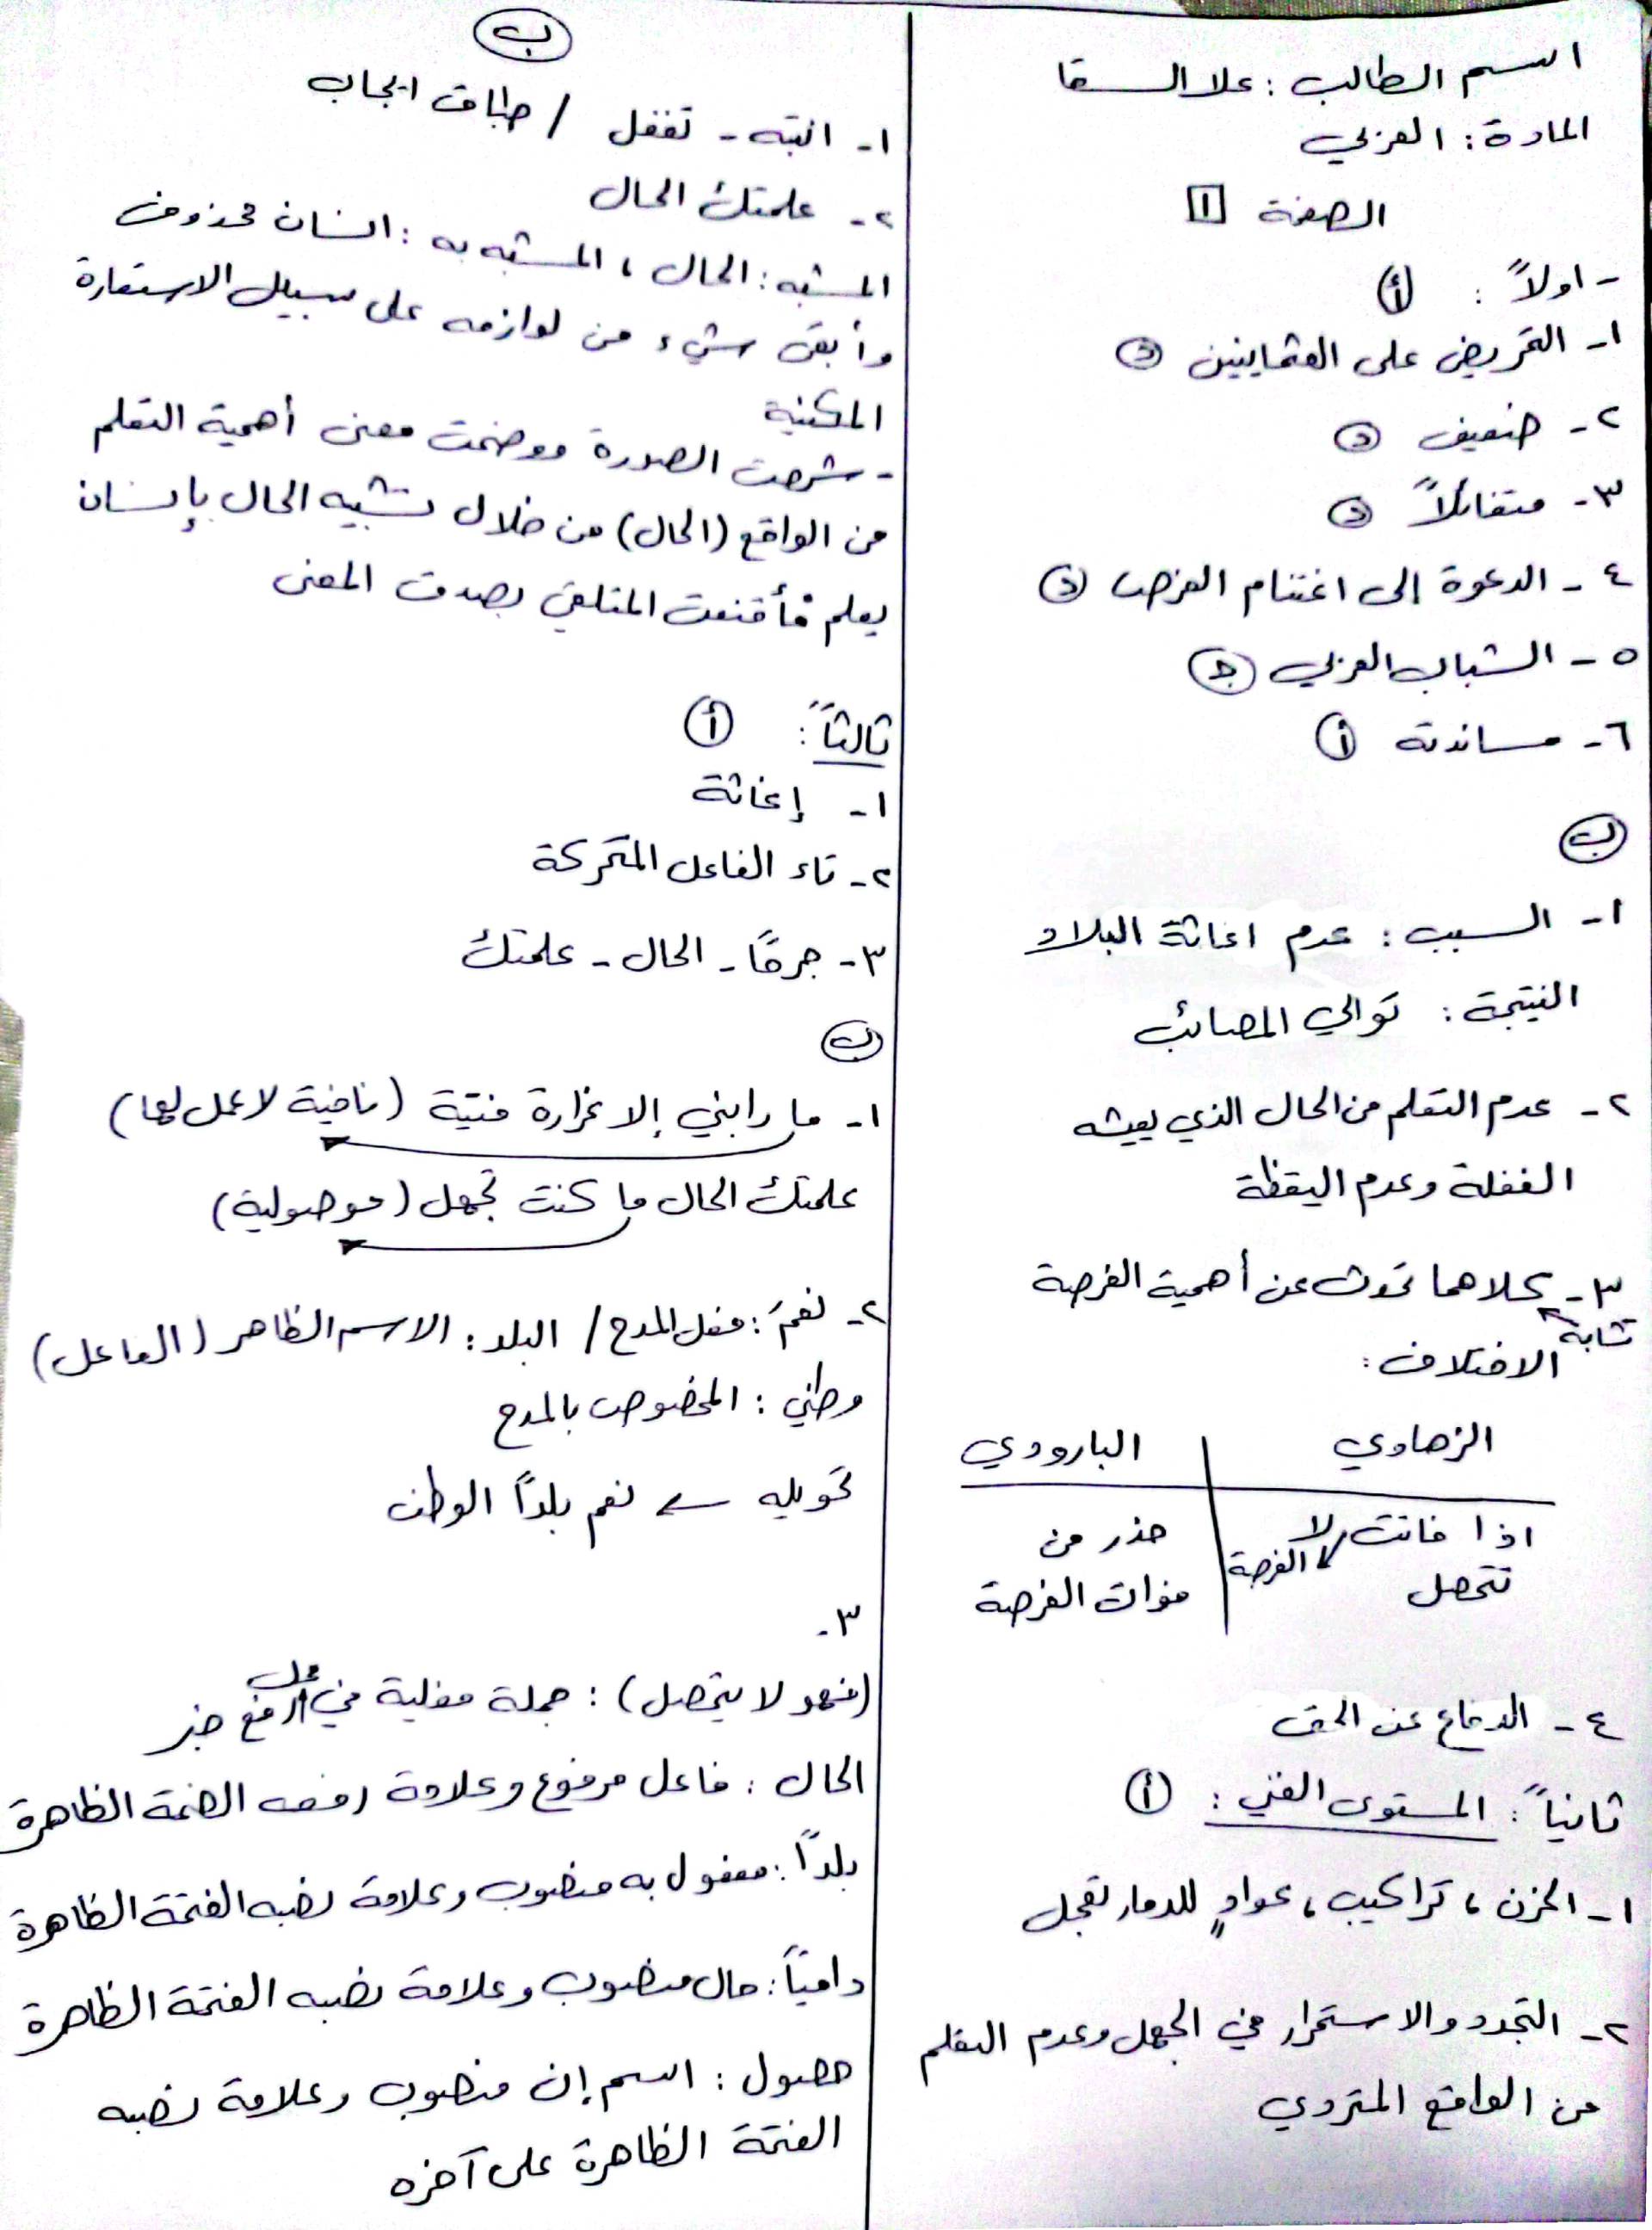 اسم الطالب : علا السقا
المادة : العربي
الصفحة 1
- اولاً : أ
١- التحريض على العثمانيين د
٢- ضعيف د
٣- متفائلاً د
٤- الدعوة إلى اغتنام الفرص د
٥- الشباب العربي ج
٦- مساندته أ
ب
١- السبب : عدم اغاثة البلاد
النتيجة : توالي المصائب
٢- عدم التعلم من الحال الذي يعيشه
الغفلة وعدم اليقظة
٣- كلاهما تحدث عن أهمية الفرصة
تشابه
الاختلاف :
الزهاوي
البارودي
اذا فاتت الفرصة لا
تتحصل
حذر من
فوات الفرصة
٤- الدفاع عن الحق
ثانياً : المستوى الفني : أ
١- الحزن ، تراكيب ، عوادٍ للدمار تعجل
٢- التجدد والاستمرار في الجهل وعدم التعلم
من الواقع المتردي
ب
١- انتبه - تغفل / طباق ايجاب
٢- علمتك الحال
المشبه : الحال ، المشبه به : انسان محذوف
وأبقى شيء من لوازمه على سبيل الاستعارة
المكنية
- شرحت الصورة ووضحت معنى أهمية التعلم
من الواقع (الحال) من خلال تشبيه الحال بإنسان
يعلم فأقنعت المتلقي بصدق المعنى
ثالثاً : أ
١- إغاثة
٢- تاء الفاعل المتحركة
٣- جرحًا - الحال - علمتك
ب
١- ما رابني إلا غرارة فتية (نافية لا عمل لها)
علمتك الحال ما كنت تجهل (موصولية)
٢- نعمَ : فعل المدح / البلد : الاسم الظاهر (الفاعل)
وطني : المخصوص بالمدح
تحويله ← نعم بلداً الوطن
٣-
(فهو لا يتحصل) : جملة فعلية في محل رفع خبر
الحال : فاعل مرفوع وعلامة رفعه الضمة الظاهرة
بلداً : مفعول به منصوب وعلامة نصبه الفتحة الظاهرة
دامياً : حال منصوب وعلامة نصبه الفتحة الظاهرة
حصول : اسم إن منصوب وعلامة نصبه
الفتحة الظاهرة على آخره